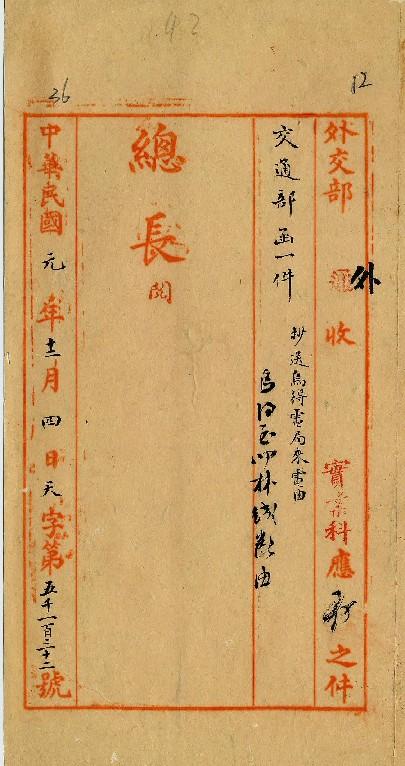 42
12
36
外交部 外 收 實業科應 存 之件
交通部函一件
抄送烏得電局來電由
烏得至叨林綫斷由
總長
閱
中華民國元年十二月四日天字第五千一百三十二號